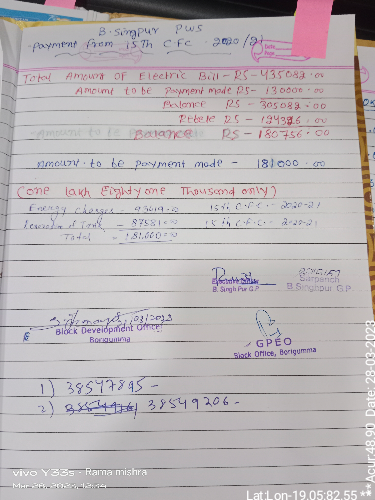 B. Singpur PWS
Payment from 15th C.F.C. 2020/21
Total Amount of Electric Bill - RS - 435082.00
Amount to be payment made RS - 130000.00
Balance RS - 305082.00
Rebete RS - 124326.00
Balance RS - 180756.00
Amount to be payment made - 181000.00
(One lakh Eighty one Thousand only)
Energy Charges - 93419.00 15th C.F.C. - 2020-21
87581.00 15th C.F.C. - 2020-21
Total - 181,000.00
B. Singhpur G.P
Sarpanch
B. Singhpur G.P.
Block Development Officer
Borigumma
GPEO
Block Office, Borigumma
1) 38547895 -
2) 38549206 -
vivo Y33s · Rama mishra
Lat Lon-19.05:82.55 ** Acur:48.90 Date: 28-03-2023